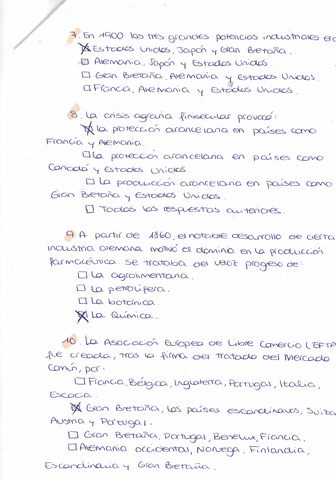 7. En 1900 las tres grandes potencias industriales era
☒ Estados Unidos, Japón y Gran Bretaña.
☐ Alemania, Japón y Estados Unidos.
☐ Gran Bretaña, Alemania y Estados Unidos.
☐ Francia, Alemania y Estados Unidos.
8. La crisis agraria finisecular provocó:
☒ La protección arancelaria en países como
Francia y Alemania.
☐ La protección arancelaria en países como
Canadá y Estados Unidos.
☐ La producción arancelaria en países como
Gran Bretaña y Estados Unidos.
☐ Todas las respuestas anteriores.
9. A partir de 1860, el notable desarrollo de cierta
industria alemana motivó el dominio en la producción
farmacéutica. Se trataba del veloz progreso de:
☐ La agroalimentaria.
☐ La petrolífera.
☐ La botánica.
☒ La Química.
10. La Asociación Europea de Libre Comercio (EFTA
fue creada, tras la firma del tratado del Mercado
Común, por:
☐ Francia, Bélgica, Inglaterra, Portugal, Italia,
Escocia.
☒ Gran Bretaña, los países escandinavos, Suiza
Austria y Portugal.
☐ Gran Bretaña, Portugal, Benelux, Francia.
☐ Alemania occidental, Noruega, Finlandia,
Escandinavia y Gran Bretaña.